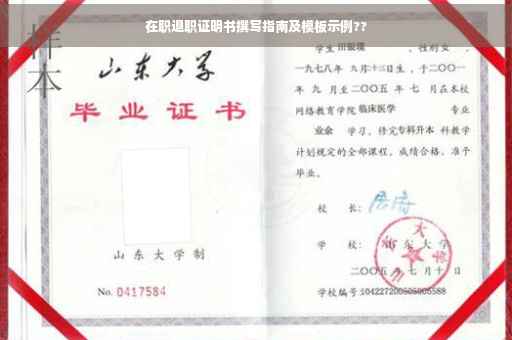 在职退职证明书撰写指南及模板示例??
样本
山东大学
毕业证书
山东大学制
No. 0417584
学生 田银瑞 ，性别女，
一九七八年 九月十三日生，于二〇〇一
年 九 月至二〇〇五 年 七 月在本校
网络教育学院 临床医学 专业
业余 学习，修完专科升本 科教学
计划规定的全部课程，成绩合格，准予
毕业。
校 长：
学 校：山东大学
二〇〇五 年 七 月 十 日
学校编号:104227200505005588